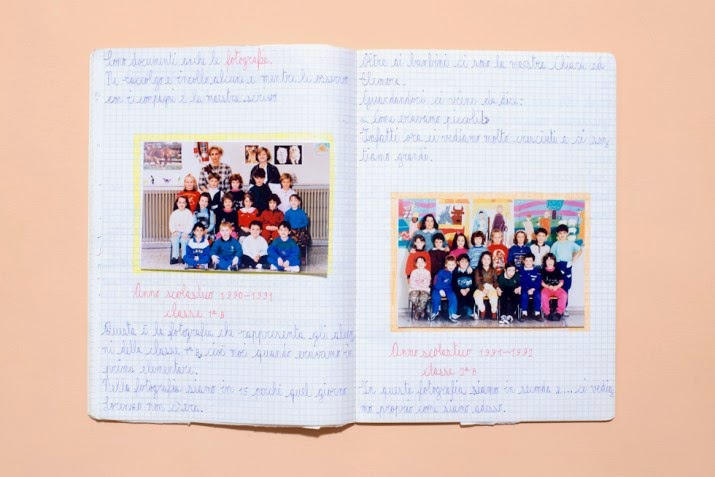 Sono documenti anche le fotografie.
Ne raccolgo e incollo alcune e mentre le osservo
con i compagni e la maestra scrivo
Anno scolastico 1990-1991
classe 1ª B
Questa è la fotografia che rappresenta gli alun
ni della classe 1ª B, cioè noi quando eravamo in
prima elementare.
Nella fotografia siamo in 15 perché quel giorno
Lorenzo non c'era.
Oltre ai bambini ci sono la maestra Chiara ed
Eleonora.
Guardandoci ci viene da dire:
come eravamo piccoli!
Infatti ora ci vediamo molto cresciuti e ci sen
tiamo grandi.
Anno scolastico 1991-1992
classe 2ª B
In questa fotografia siamo in seconda e ci vedia
mo proprio come siamo adesso.